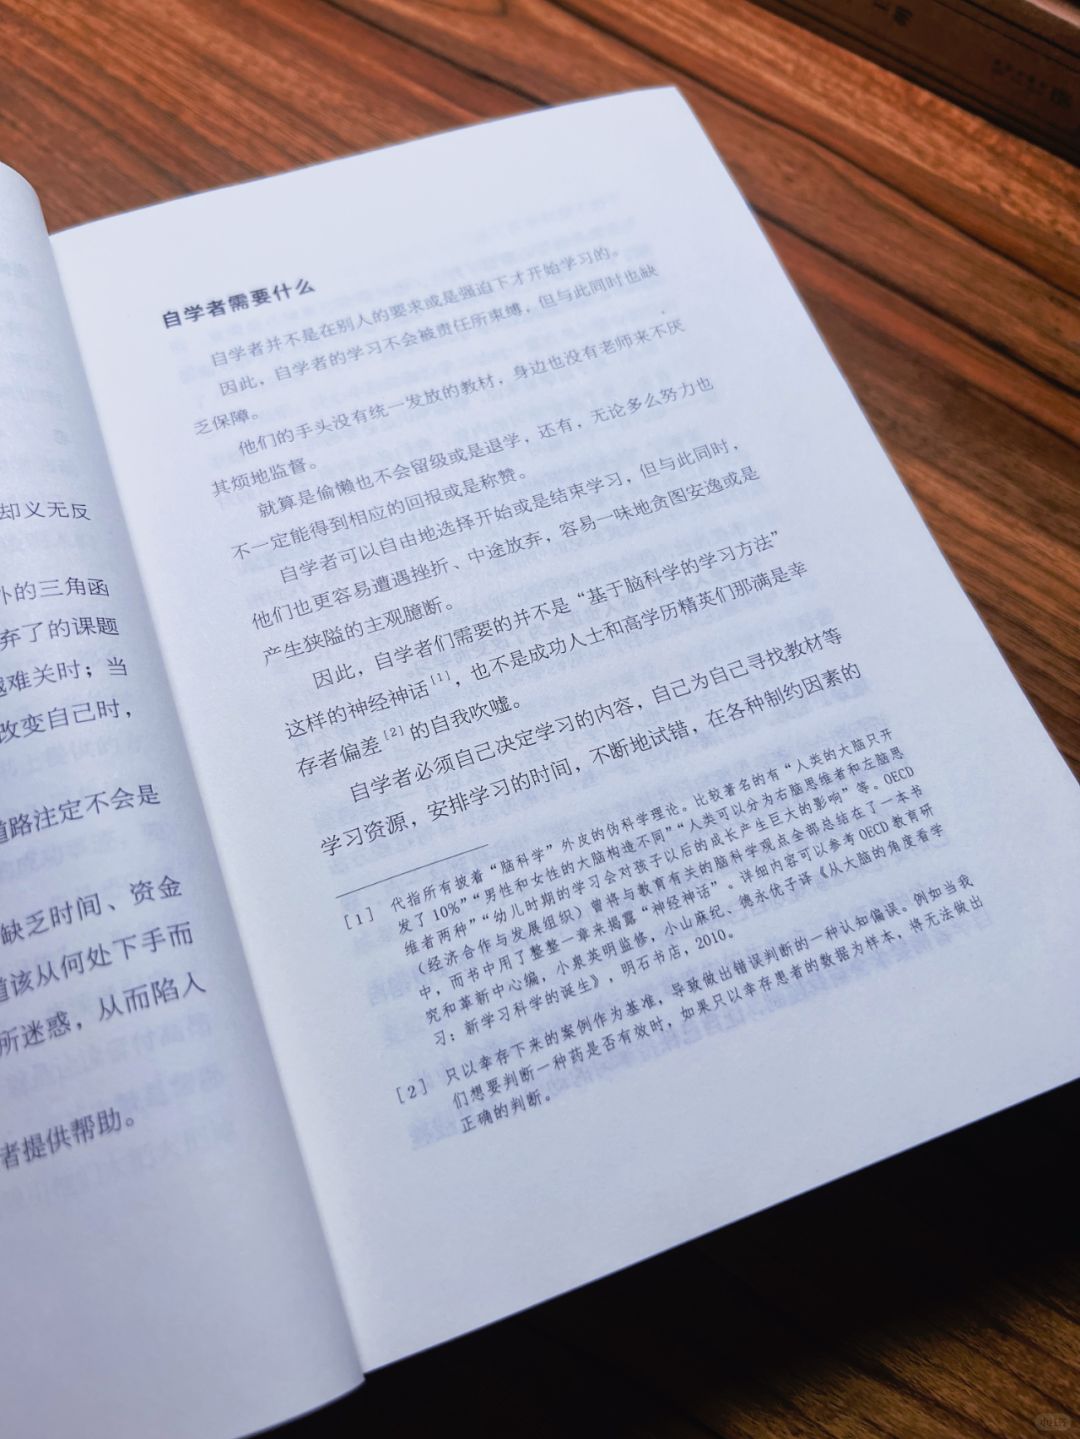 却义无反
外的三角函
弃了的课题
越难关时；当
改变自己时，
道路注定不会是
缺乏时间、资金
道该从何处下手而
所迷惑，从而陷入
者提供帮助。
自学者需要什么
自学者并不是在别人的要求或是强迫下才开始学习的。
因此，自学者的学习不会被责任所束缚，但与此同时也缺
乏保障。
他们的手头没有统一发放的教材，身边也没有老师来不厌
其烦地监督。
就算是偷懒也不会留级或是退学，还有，无论多么努力也
不一定能得到相应的回报或是称赞。
自学者可以自由地选择开始或是结束学习，但与此同时，
他们也更容易遭遇挫折、中途放弃，容易一味地贪图安逸或是
产生狭隘的主观臆断。
因此，自学者们需要的并不是“基于脑科学的学习方法”
这样的神经神话[1]，也不是成功人士和高学历精英们那满是幸
存者偏差[2]的自我吹嘘。
自学者必须自己决定学习的内容，自己为自己寻找教材等
学习资源，安排学习的时间，不断地试错，在各种制约因素的
[1] 代指所有披着“脑科学”外皮的伪科学理论。比较著名的有“人类的大脑只开
发了10%”“男性和女性的大脑构造不同”“人类可以分为右脑思维者和左脑思
维者两种”“幼儿时期的学习会对孩子以后的成长产生巨大的影响”等。OECD
（经济合作与发展组织）曾将与教育有关的脑科学观点全部总结在了一本书
中，而书中用了整整一章来揭露“神经神话”。详细内容可以参考OECD教育研
究和革新中心编，小泉英明监修，小山麻纪、德永优子译《从大脑的角度看学
习：新学习科学的诞生》，明石书店，2010。
[2] 只以幸存下来的案例作为基准，导致做出错误判断的一种认知偏误。例如当我
们想要判断一种药是否有效时，如果只以幸存患者的数据为样本，将无法做出
正确的判断。